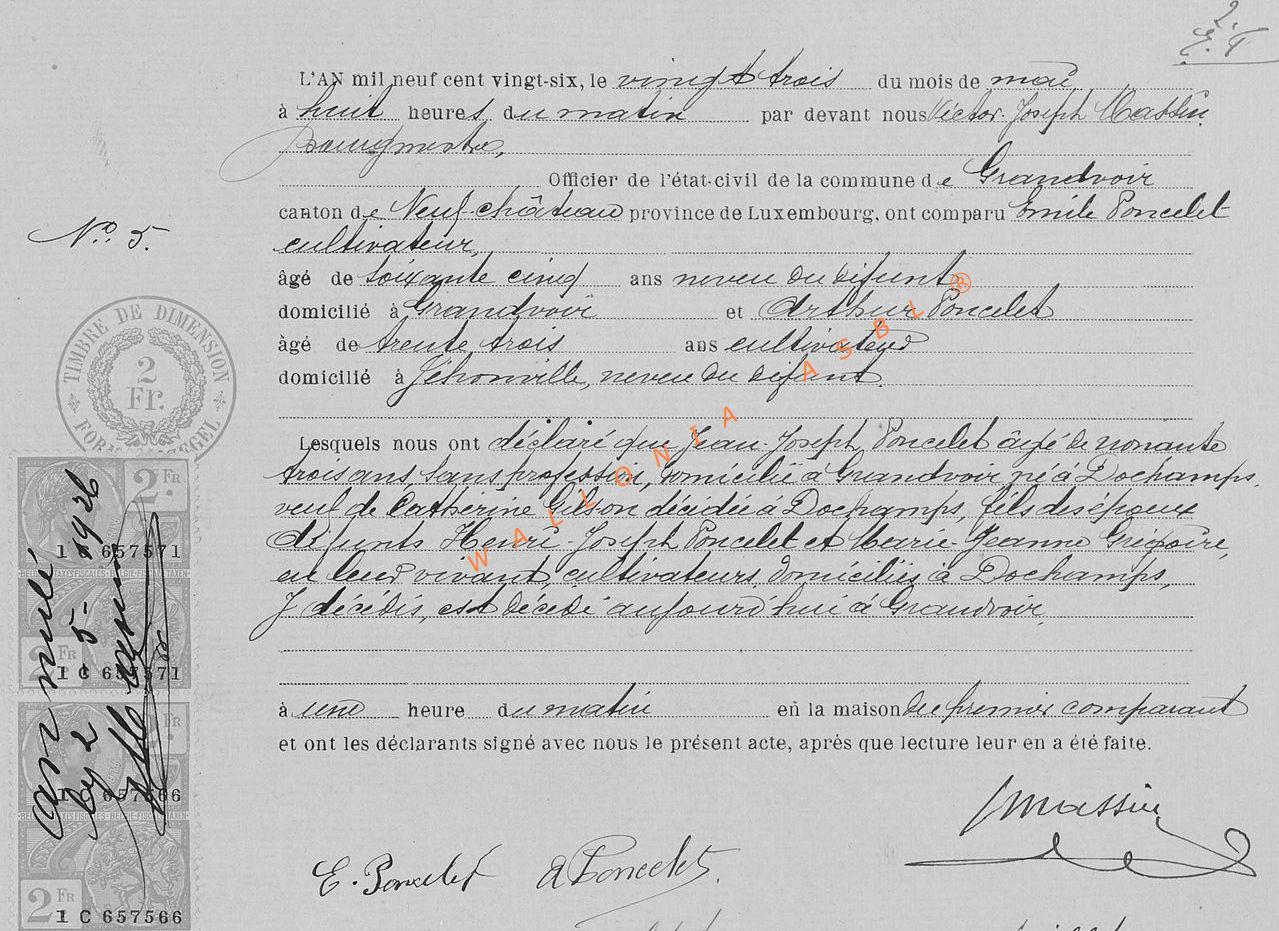 2.
E. P
L'AN mil neuf cent vingt-six, le vingt trois du mois de mai,
à huit heures du matin par devant nous Victor Joseph Massin
Bourgmestre,
Officier de l'état-civil de la commune de Grandvoir
canton de Neufchâteau province de Luxembourg, ont comparu Emile Poncelet
Nº 5.
cultivateur,
âgé de soixante cinq ans neveu du défunt
domicilié à Grandvoir et Arthur Poncelet
âgé de trente trois ans cultivateur
domicilié à Jéhonville, neveu du défunt.
TIMBRE DE DIMENSION
2
Fr.
Lesquels nous ont déclaré que Jean-Joseph Poncelet âgé de nonante
trois ans, sans profession, domicilié à Grandvoir né à Dochamps,
veuf de Catherine Gilson décédée à Dochamps, fils des époux
défunts Henri-Joseph Poncelet et Marie-Jeanne Grégoire,
en leur vivant cultivateurs domiciliés à Dochamps,
y décédés, est décédé aujourd'hui à Grandvoir,
à une heure du matin en la maison du premier comparant
et ont les déclarants signé avec nous le présent acte, après que lecture leur en a été faite.
V Massin
E. Poncelet A Poncelet
WALLONIA ASBL ®
annulé
5-1926
2 Fr
1 C 657571
1 C 657571
2 Fr
1 C 657566
2 Fr
1 C 657566